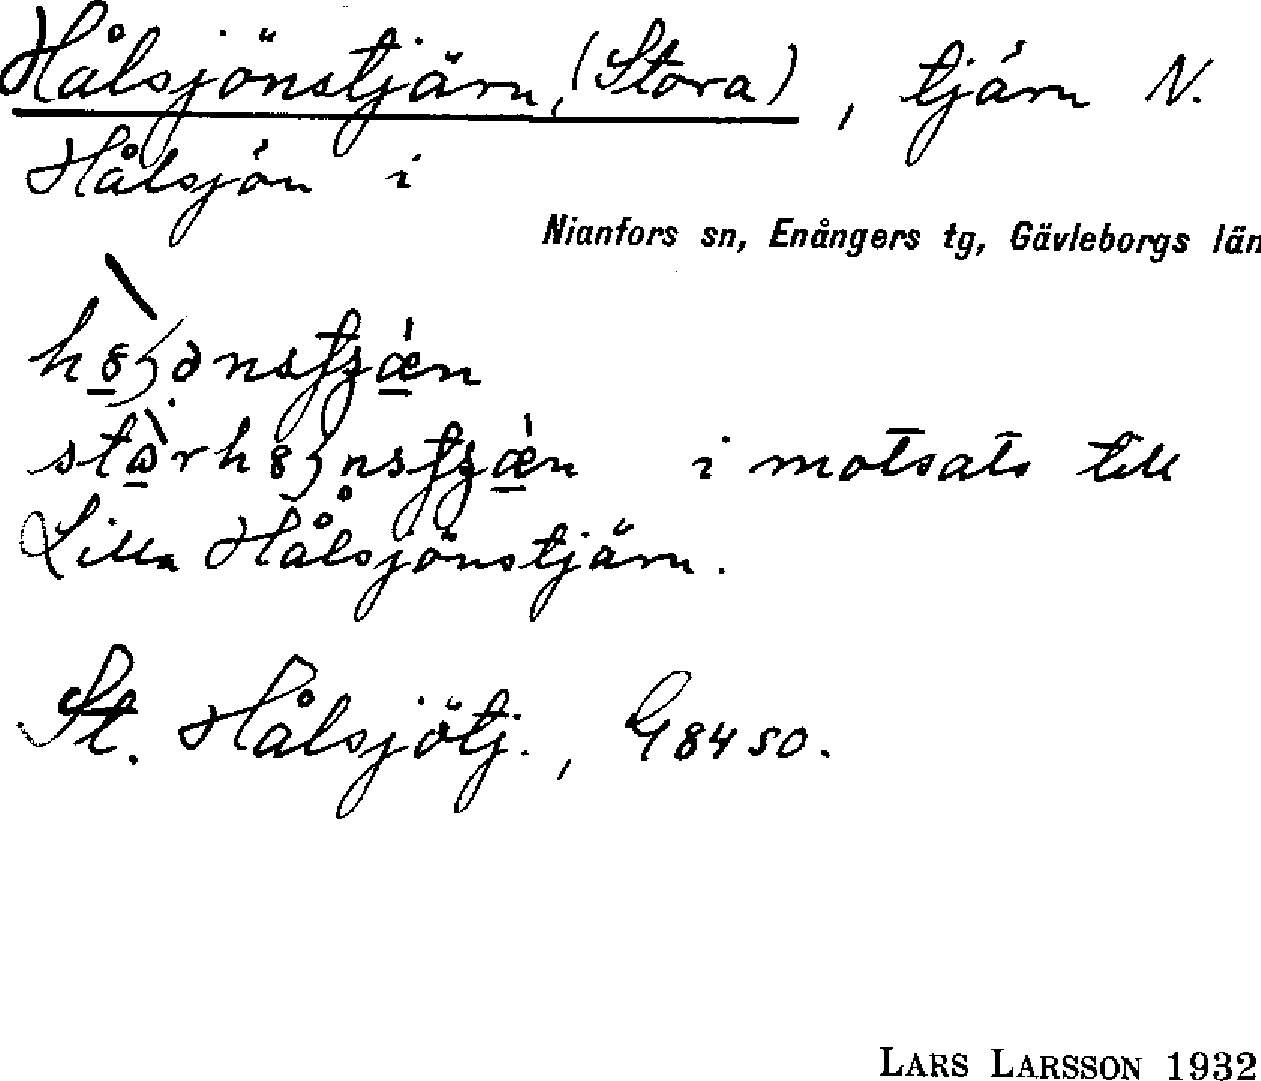 Hålsjönstjärn, (Stora), tjärn N.
Hålsjön i
Nianfors sn, Enångers tg, Gävleborgs län
i motsats till
Lilla Hålsjönstjärn.
St. Hålsjötj., G8450.
LARS LARSSON 1932